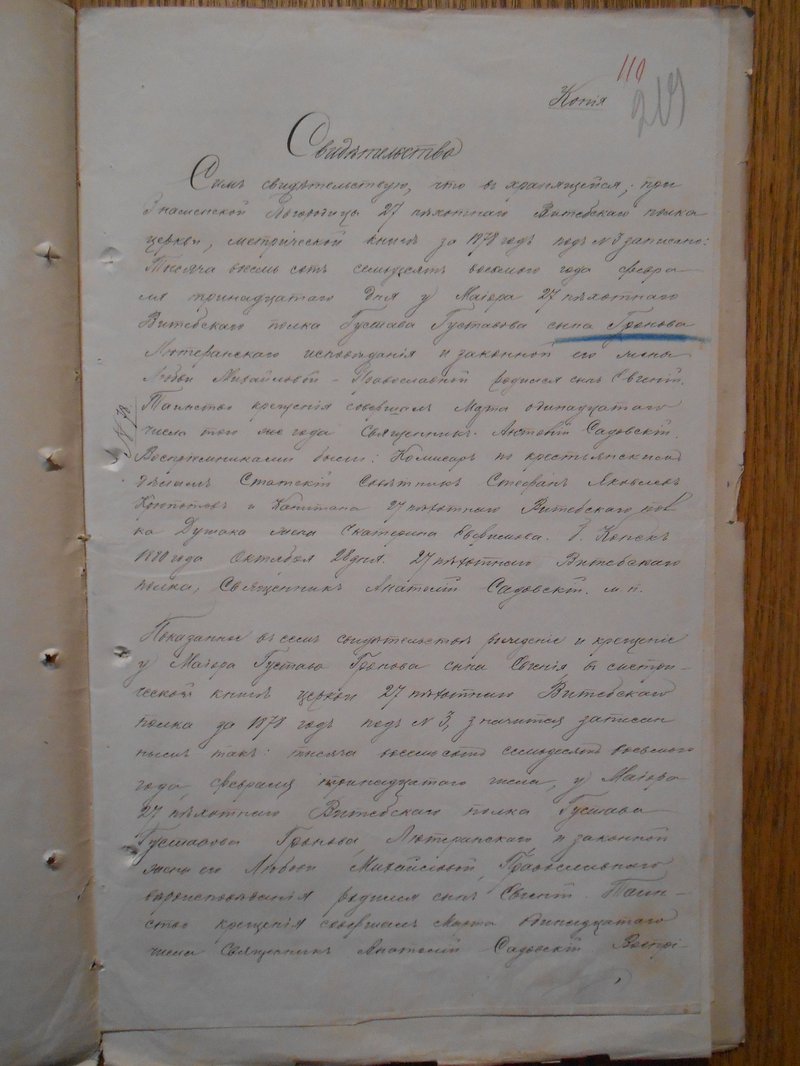 110
Копія
219
Свидѣтельство
Симъ свидѣтельствую, что въ хранящейся, при
Знаменской Богородицы 27 пѣхотнаго Витебскаго полка
церкви, метрической книгѣ за 1878 годъ подъ № 3 записано:
Тысяча восемь сотъ семьдесятъ восьмого года февра-
ля тринадцатаго дня у Маіора 27 пѣхотнаго
Витебскаго полка Густава Густавова сына Гронова
Лютеранскаго исповѣданія и законной его жены
Любви Михайловой - Православной родился сынъ Евгеній.
Таинство крещенія совершалъ Марта одинадцатаго
числа того же года Священникъ Анатолій Садовскій.
Воспріемниками были: Комисаръ по крестьянскимъ
дѣламъ Статскій Совѣтникъ Стефанъ Яковлевъ
и Капитана 27 пѣхотнаго Витебскаго пол
ка жена Екатерина Ефимова. г. Конскъ
1880 года Октября 28 дня. 27 пѣхотнаго Витебскаго
полка, Священникъ Анатолій Садовскій. м. п.
Показанное въ семъ свидѣтельствѣ рожденіе и крещеніе
у Маіора Густава Гронова сына Евгенія въ метри-
ческой книгѣ церкви 27 пѣхотнаго Витебскаго
полка за 1878 годъ подъ № 3, значится записан
нымъ такъ: тысяча восемьсотъ семьдесятъ восьмого
года, февраля тринадцатаго числа, у Маіора
27 пѣхотнаго Витебскаго полка Густава
Густавова Гронова, Лютеранскаго, и законной
жены его Любови Михайловой, Православнаго
вѣроисповѣданія родился сынъ Евгеній. Таин-
ство крещенія совершалъ Марта одинадцатаго
числа Священникъ Анатолій Садовскій. Воспрі-